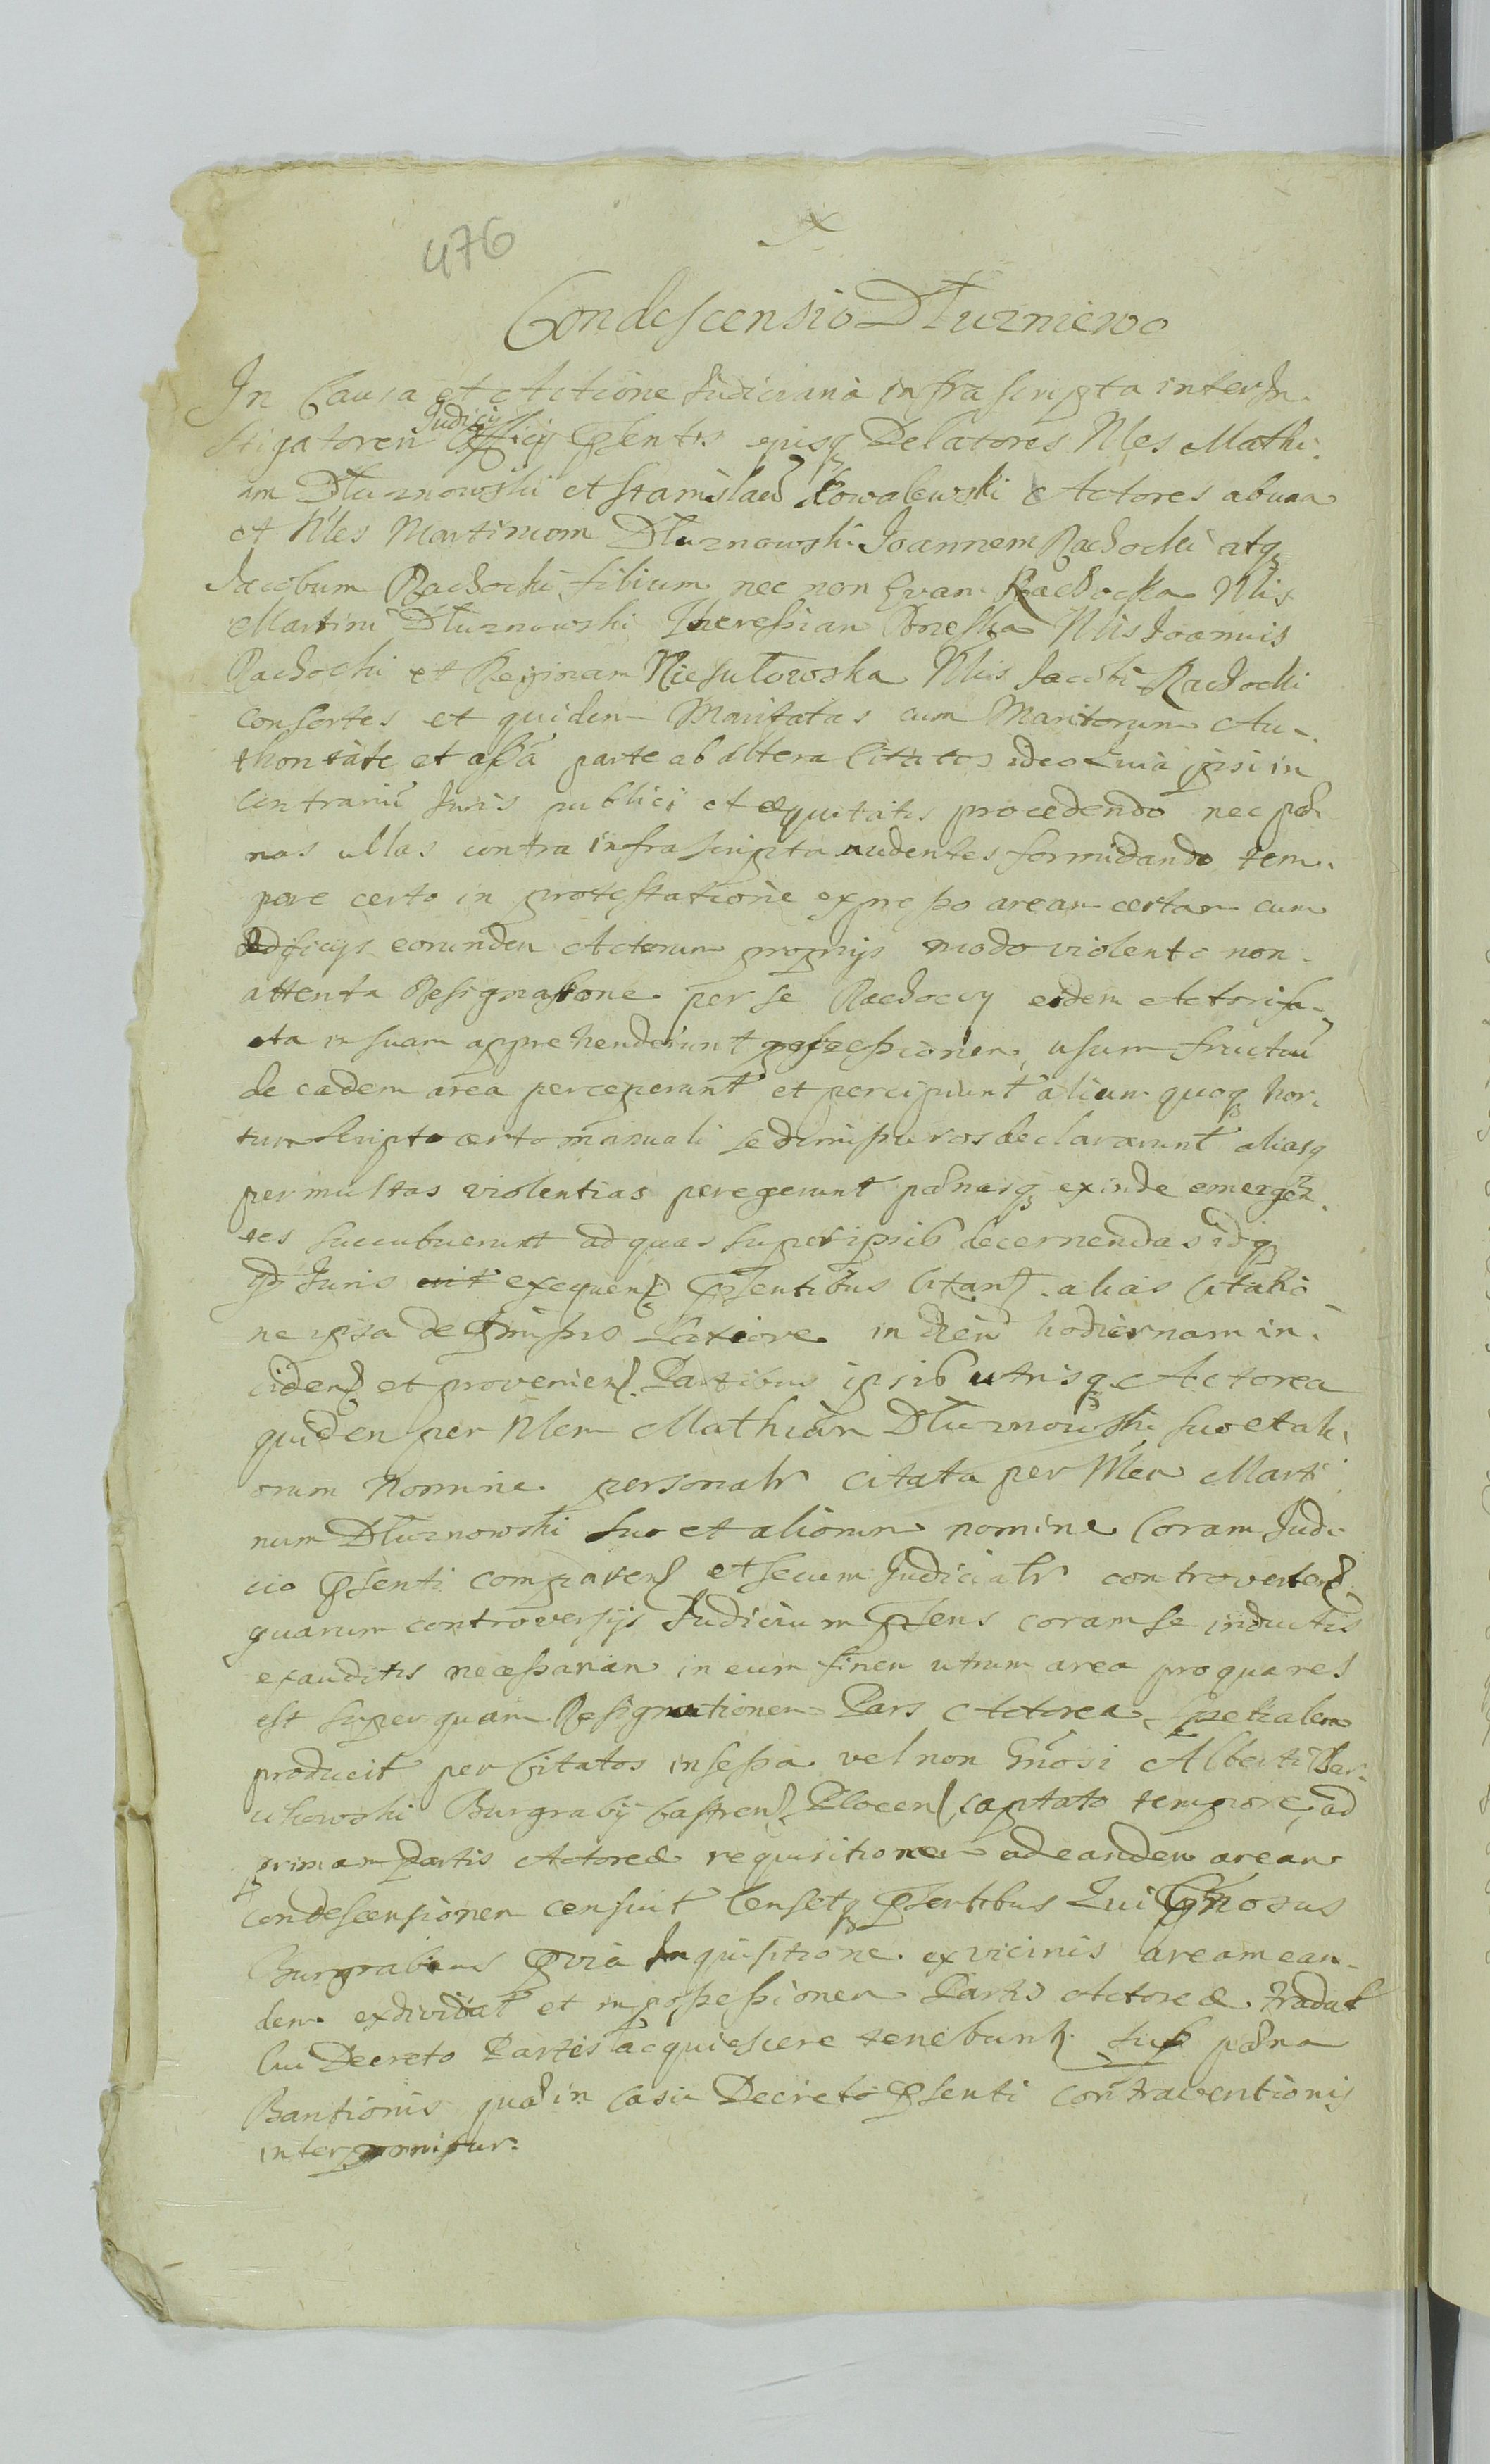 476
Condescensio Dłuzniewo
In Causa et Actione Judiciaria infra scripta inter In-
stigatorem Judicij Officij Psentis ejusq Delatores Nles Mathi-
am Dłuznowski et Stanislaū Kowalewski Actores ab una
et Nles Martinum Dłuznowski Joannem Racħocki atq
Jacobum Racħocki filium nec non Evam Racħocka Nlis
Martini Dłuznowski Theressiam Nlis Joannis
Racħocki et Reginam Niesułowska Nlis Jacobi Racħocki
Consortes et quidem Maritatas cum Maritorum Au-
thoritate et assa parte ab altera Citatos ideo Quia ipsi in
Contrariū Juris publici et æquitatis procedendo nec pæ-
nas ullas contra infra scripta audentes formidando tem-
pore certo in protestatione expresso aream certam cum
ædificijs eorundem Actorum proprijs modo violento non
attenta Resignatione per se Racħoccy eidem Actori fa-
cta in suam apprehenderunt possessionem, usum fructū
de eadem area perceperunt et percipiunt alium quoq hor-
tum scripto certo manuali se dimissuros declararunt aliasq
permultas violentias peregerunt pænasq exinde emergen-
tes succubuerunt ad quas super ipsis decernendas idq
qd Juris exequen Psentibus Citant. alias Citatio
ne ipsa de præmissis Latiore in diem hodiernam in-
ciden et provenien Partibus ipsis utrisq Actorea
quidem per Nlem Mathiam Dłuznowski suo et ali-
orum Nomine personalr citata per Nlem Marti
num Dłuznowski suo et aliorum nomine Coram Judi-
cio Psenti comparen et secum Judicialr controverten
quarum controversijs Judicium Psens coram se inductis
exauditis necessariam in eum finem utrum area pro qua res
est super quam Resignationem Pars Actorea Specialem
producit per Citatos insessa vel non Gnosi Alberti
Burgrabij Castren Plocen, captato tempore, ad
primam Partis Actoreæ requisitionem ad eandem aream
condescensionem censuit Censetq Psentibus Qui Gnosus
Burgrabius Prvia Inquisitione ex vicinis aream ean-
dem exdividat et in possessionem Partis Actoreæ tradat
Cui Decreto Partes acquiescere tenebunt sub pæna
Bannionis quæ in Casu Decreto Psenti contraventionis
interponitur.